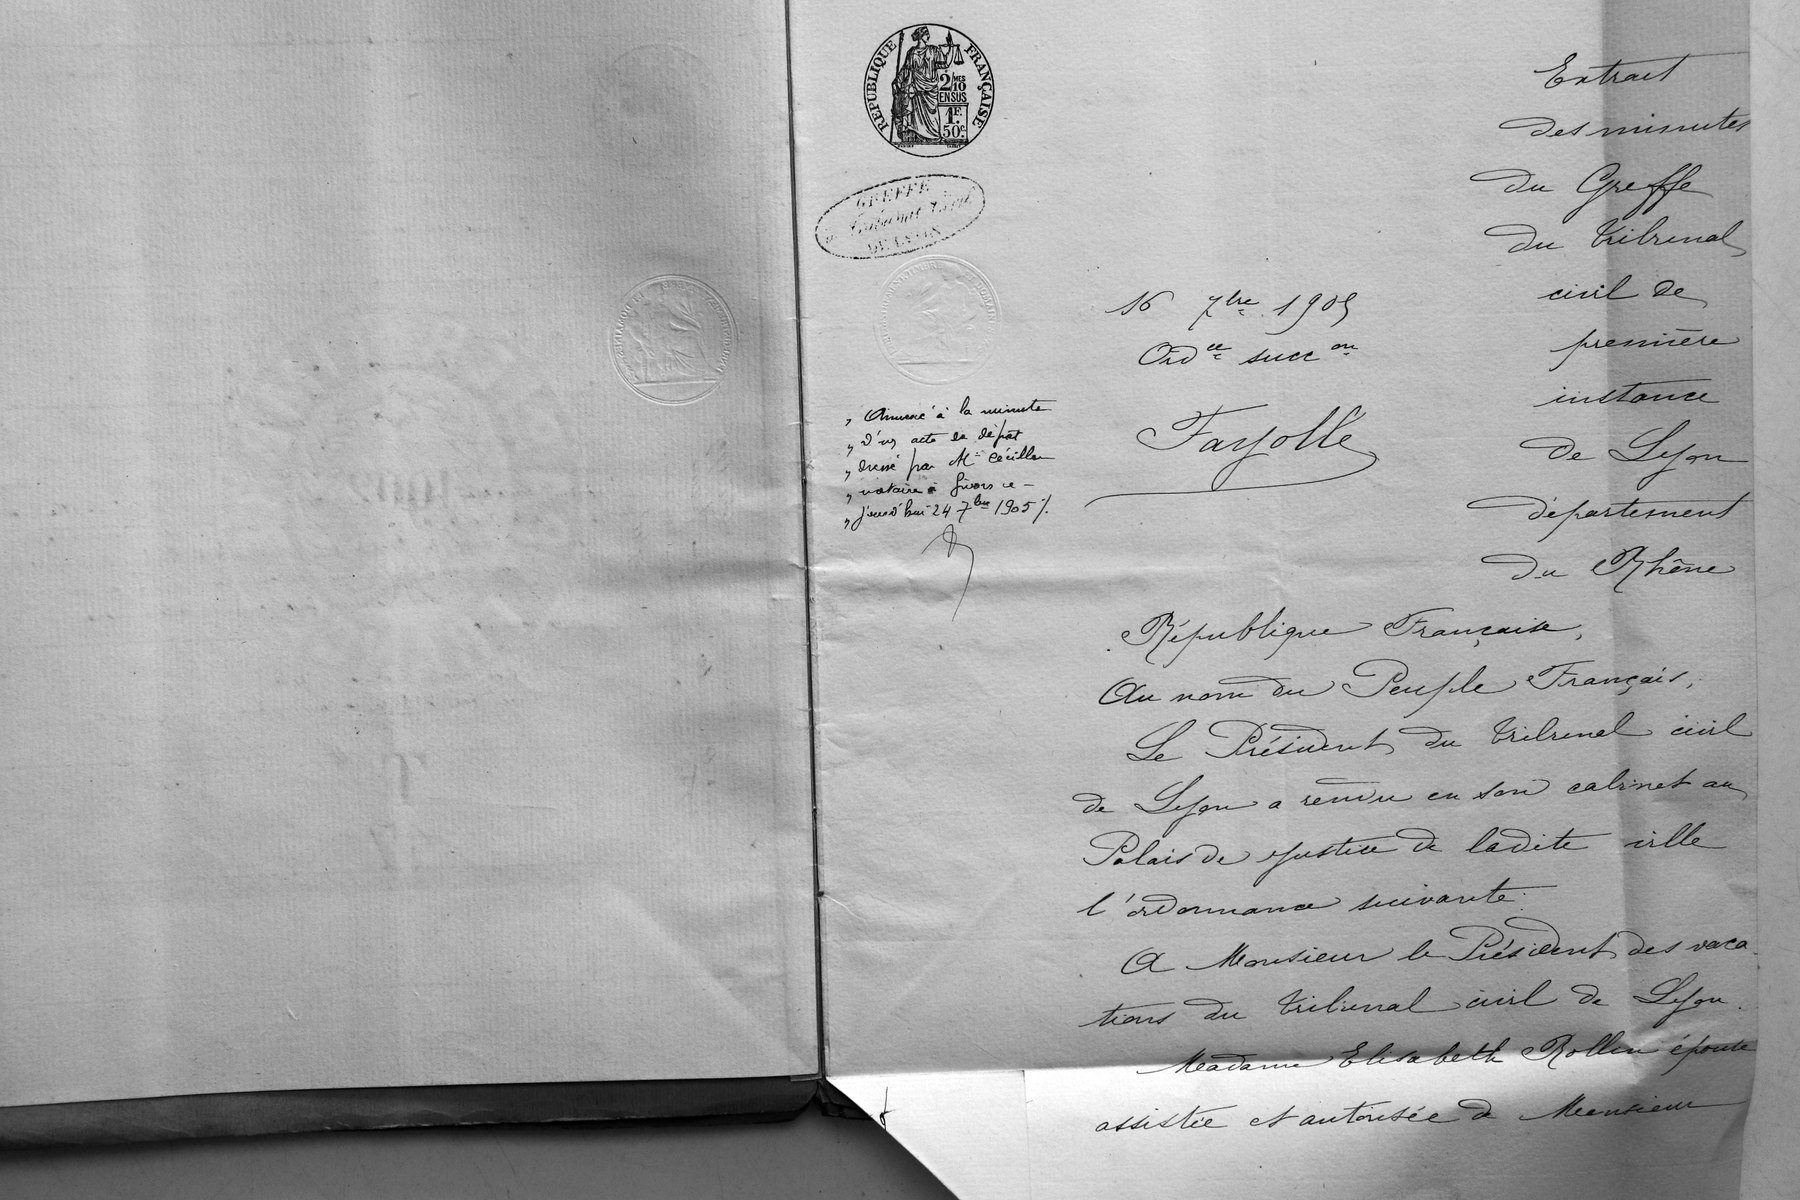 RÉPUBLIQUE FRANÇAISE
2/MES
10
EN SUS
1F.
50c.
GREFFE
du Tribunal Civil
DE LYON
Extrait
des minutes
du Greffe
du tribunal
civil de
première
instance
de Lyon
département
du Rhône
16 7bre 1905
Ordce succon
Fayolle
„ Annexé à la minute
„ d'un acte de dépôt
„ dressé par Me Cécillon
„ notaire à Givors ce
„ jourd'hui 24 7bre 1905 /.
République Française,
Au nom du Peuple Français,
Le Président du tribunal civil
de Lyon a rendu en son cabinet au
Palais de justice de ladite ville
l'ordonnance suivante.
A Monsieur le Président des vaca
tions du tribunal civil de Lyon.
Madame Elisabeth Rollin épouse
assistée et autorisée de Monsieur